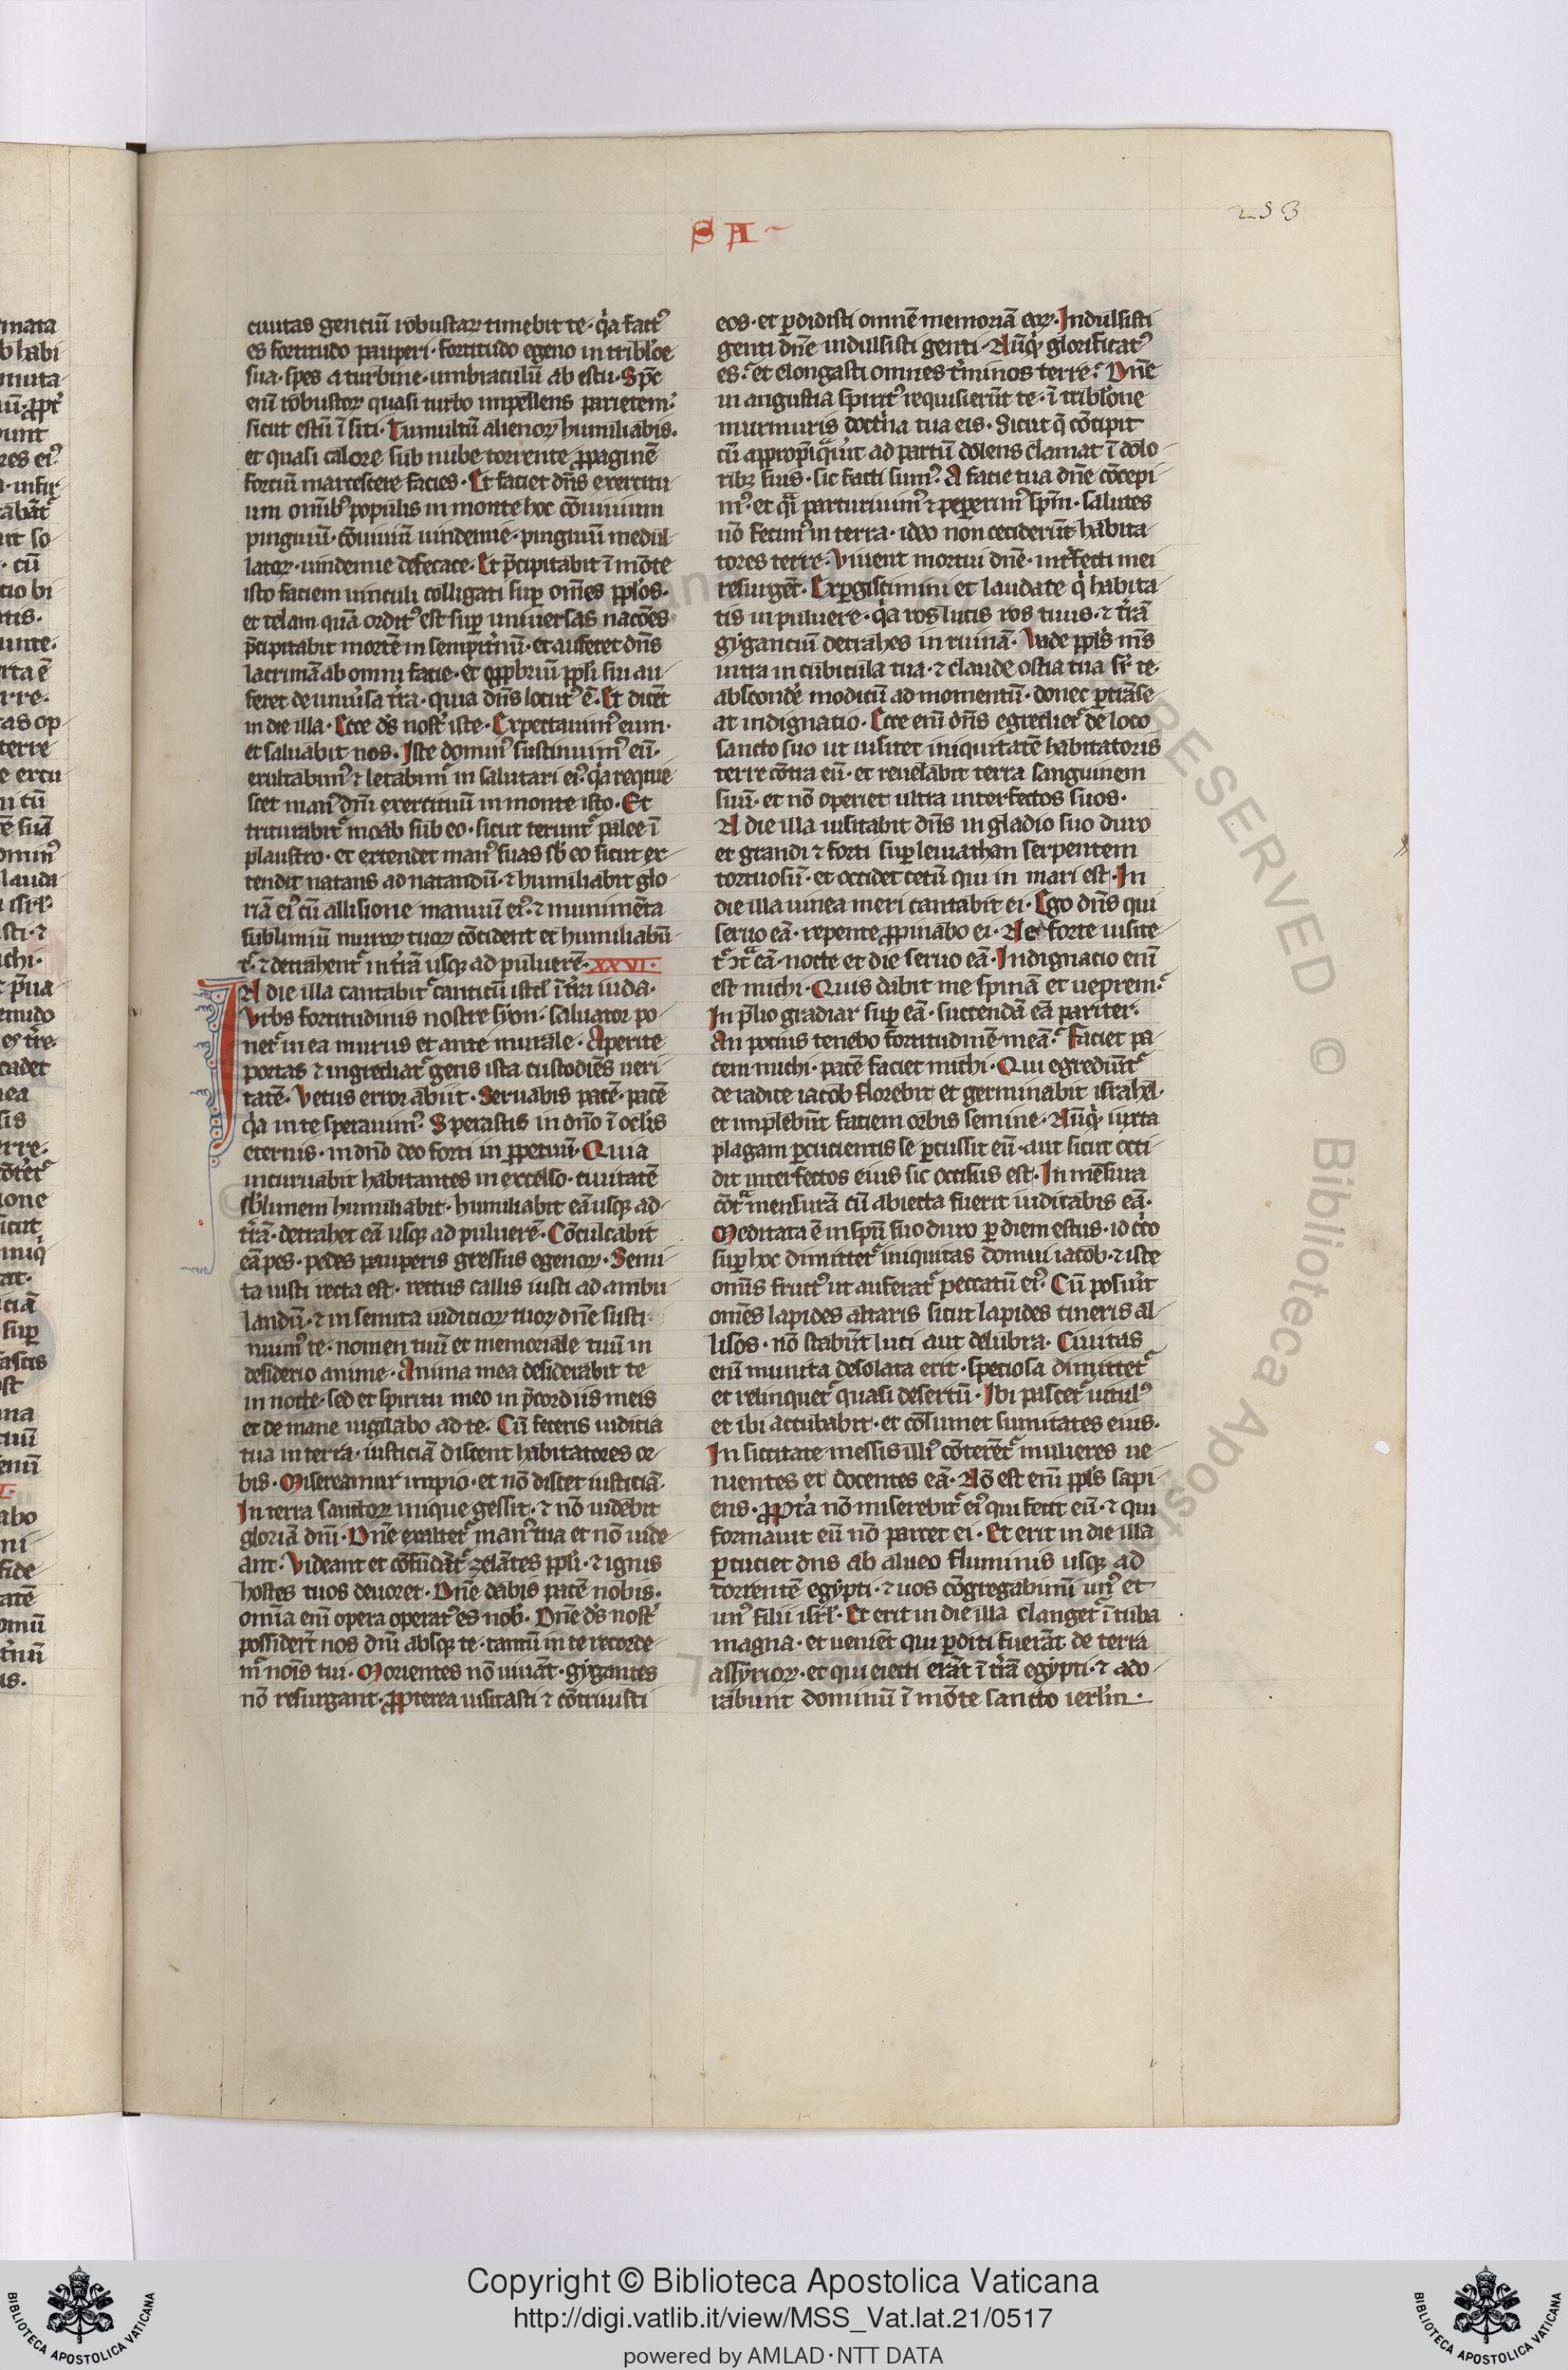 S A
253
ciuitas gentiū robustaꝝ timebit te · q̇a fact᷒
es fortitudo pauperi · fortitudo egeno in tribl̕oe
sua · spes a turbine · umbraculū ab estu · Spc̄
eni᷒ robustoꝝ quasi turbo impellens parietem ·
sicut estū ī siti · Tumultū alienoꝝ humiliabis ·
et quasi calore sub nube torrente ꝓpaginē
fortiū marcescere facies · Et faciet dn̄s exercitu
um omīb᷒ populis in monte hoc cōuiuium
pinguiū · cōuiuiū uindemie · pinguiū medul
latoꝝ · uindemie defecate · Et p̄cipitabit ī mōte
isto faciem uinculi colligati suꝑ om̄es ppl̕os ·
et telam quā ordit᷒ est suꝑ uniuersas nacōes
p̄cipitabit mortē in sempit̕nū · et auferet dn̄s
lacrimā ab omni facie · et opprbriū ppl̕i sui au
feret de uniu̕sa t̕ra · quia dn̄s locut᷒ ē · Et dicet
in die illa · Ecce ds̄ nost̕ iste · Expectauim᷒ eum ·
et saluabit nos · Iste domin᷒ sustinuim᷒ eū ·
exultabim᷒ ⁊ letabim᷒ in salutari ei᷒ · q̇a requie
scet man᷒ dn̄i exercituū in monte isto · Et
triturabit᷑ moab sub eo · sicut terunt᷑ palee ī
plaustro · et extendet man᷒ suas sb̕ eo sicut ex
tendit natans ad natandū · ⁊ humiliabit glo
riā ei᷒ cū allisione manuū ei᷒ · ⁊ munimēta
sublimiū muroꝝ tuoꝝ cōcident et humiliabū
t᷑ · ⁊ detrahent᷑ in t̕rā usqꝫ ad puluerē · XXVI ·
In die illa cantabit᷑ canticū istd̕ ī t̕ra iuda ·
Vrbs fortitudinis nostre syon · saluator po
net᷑ in ea murus et ante murale · Aperite
portas ⁊ ingrediat᷑ gens ista custodiēs ueri
tatē · Vetus error abiit · Seruabis pacē · pacē
q̇a in te sperauim᷒ · Sperastis in dn̄o ī sc̄l̕is
eternis · in dn̄o deo forti in ꝑpetuū · Quia
incuruabit habitantes in excelso · ciuitatē
sb̕limem humiliabit · humiliabit eā usqꝫ ad
t̕rā · detrahet eā usqꝫ ad puluerē · Cōculcabit
eā pes · pedes pauperis gressus egenoꝝ · Semi
ta iusti recta est · rectus callis iusti ad ambu
landū · ⁊ in semita iudicioꝝ tuoꝝ dn̄e susti
nuim᷒ te · nomen tuū et memoriale tuū in
desiderio anime · Anima mea desiderabit te
in nocte · sed et spiritu meo in p̄cordiis meis
et de mane uigilabo ad te · Cū feceris iudicia
tua in terra · iusticiā discent habitatores or
bis · Misereamur impio · et nō discet iusticiā ·
In terra sanctoꝝ inique gessit · ⁊ nō uidebit
gloriā dn̄i · Dn̄e exaltet᷑ man᷒ tua et nō uide
ant · Videant et cōfūdāt᷑ zelātes ppl̕i · ⁊ ignis
hostes tuos deuoret · Dn̄e dabis pacē nobis ·
omīa eni᷒ opera operat᷒ es nob̕ · Dn̄e ds̄ nost̕
possider̄t nos dn̄i absqꝫ te · tantū in te recorde
m᷑ noīs tui · Morientes nō uiuāt · gygantes
nō resurgant · ꝓpterea uisitasti ⁊ cōtriuisti
eos · et ꝑdidisti omnē memoriā eoꝝ · Indulsisti
genti dn̄e indulsisti genti · Nūq̇d glorificat᷒
es · et elongasti omnes t̕minos terre · Dn̄e
in angustia spirit᷒ requisierūt te · ī tribl̕one
murmuris doct̕na tua eis · Sicut q̄ cōcipit
cū appropīquau̕it ad partū dolens clamat ī dolo
ribꝫ suis · sic facti sum᷒ · A facie tua dn̄e cōcepi
m᷒ · et q̈i parturiuim᷒ ⁊ peperim᷒ spm̄ · salutes
nō fecim᷒ in terra · ideo non ceciderūt habita
tores terre · Viuent mortui dn̄e · int̕fecti mei
resurgēt · Expergiscimini et laudate q̇ habita
tis in puluere · q̇a ros lucis ros tuus · ⁊ t̕rā
gyganciū detrahes in ruinā · Vade ppl̕s mīs
intra in cubicula tua · ⁊ claude ostia tua sr̄ te ·
abscondē modicū ad momentū · donec ꝑtiāse
at indignatio · Ecce eni᷒ dn̄s egrediet᷑ de loco
sancto suo ut uisitet iniquitatē habitatoris
terre cōtra eū · et reuelabit terra sanguinem
suū · et nō operiet ultra interfectos suos ·
In die illa uisitabit dn̄s in gladio suo duro
et grandi ⁊ forti suꝑ leuiathan serpentem
tortuosū · et occidet cetū qui in mari est · In
die illa uinea meri cantabit ei · Ego dn̄s qui
seruo eā · repente ꝓpinabo ei · Ne forte uisite
t᷑ ⁊t᷑ᵃ eā · nocte et die seruo eā · Indignatio eni᷒
est michi · Quis dabit me spinā et ueprem ·
In p̄lio gradiar suꝑ eā · succendā eā pariter ·
An pocius tenebo fortitudinē meā · Faciet pa
cem michi · pacē faciet michi · Qui egrediūt᷑
de radice iacob florebit et germinabit israhel̕ ·
et implebūt faciem orbis semine · Nūq̇d iuxta
plagam ꝑcucientis se ꝑcussit eū · aut sicut occi
dit interfectos eius sic occisus est · In mēsura
cōt᷑ᵃ mensurā cū abiecta fuerit iudicabis eā ·
Meditata ē in spū suo duro ꝑ diem estus · id c̕co
suꝑ hoc dimittet᷑ iniquitas domui iacob · ⁊ iste
omīs fruct᷒ ut auferat᷑ peccatū ei᷒ · Cū posu̕it
om̄es lapides altaris sicut lapides cineris al
lisos · nō stabūt luci aut delubra · Ciuitas
eni᷒ munita desolata erit · speciosa dimittet᷑
et relinquet᷑ quasi desertū · Ibi pascet᷑ uitul᷒
et ibi accubabit · et cōsumet sumitates eius ·
In siccitate messis illi᷒ cōterēt᷑ mulieres ue
nientes et docentes eā · Nō est eni᷒ ppl̕s sapi
ens · ꝓpt̕a nō miserebit᷑ ei᷒ qui fecit eū · ⁊ qui
formauit eū nō parcet ei · Et erit in die illa
ꝑcuciet dns ab alueo fluminis usqꝫ ad
torrentē egypti · ⁊ uos cōgregabimī un᷒ et
un᷒ filii isrl̕ · Et erit in die illa clanget᷑ ī tuba
magna · et uenīet qui ꝑditi fuerāt de terra
assyrioꝝ · et qui eiecti erāt ī t̕rā egypti · ⁊ ado
rabunt dominū ī mōte sancto ierl̕m ·
RESERVED © Biblioteca Apostolica
Copyright © Biblioteca Apostolica Vaticana
http://digi.vatlib.it/view/MSS_Vat.lat.21/0517
powered by AMLAD · NTT DATA
BIBLIOTECA APOSTOLICA VATICANA
BIBLIOTECA APOSTOLICA VATICANA